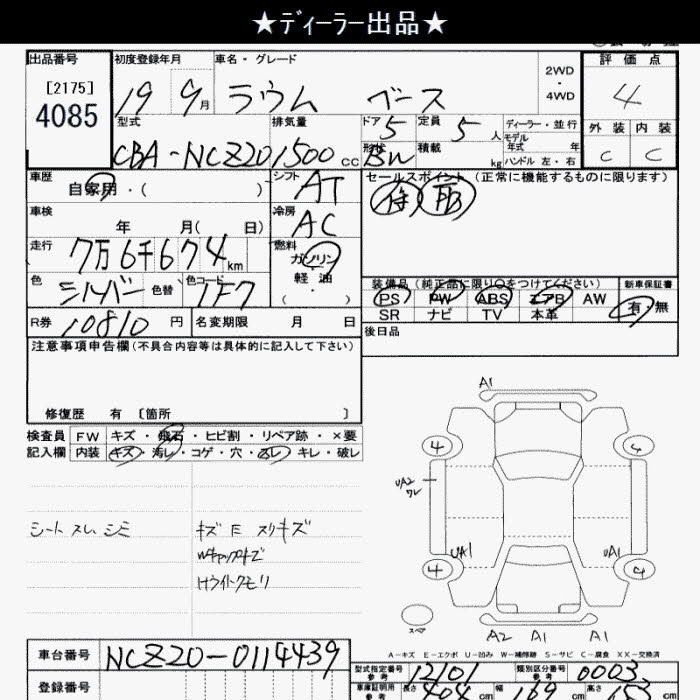 ★ディーラー出品★
出品番号 初度登録年月 車名・グレード 評価点
[2175]
4085
19 9月 ラウム ベース 2WD・4WD 4
型式 排気量 ドア 5 定員 5人 ディーラー・並行 外装 内装
モデル年式 年
CBA-NCZ20 1500cc 形状 BW 積載 kg ハンドル 左・右 C C
車歴 自家用・( ) シフト AT セールスポイント (正常に機能するものに限ります)
車検 年 月( 日) 冷房 AC
走行 7万6千674km 燃料 ガソリン
軽油
( ・ )
色 シルバー 色替 色コード 1F7
装備品 (純正品に限り○をつけてください) 新車保証書
PS PW ABS エアB AW 有・無
SR ナビ TV 本革
R券 10810円 名変期限 月 日 後日品
注意事項申告欄 (不具合内容等は具体的に記入して下さい)
修復歴 有 〔箇所 〕
検査員 FW キズ・飛石・ヒビ割・リペア跡・×要
記入欄 内装 キズ・汚レ・コゲ・穴・スレ・キレ・破レ
シート スレ シミ キズ E スリキズ
Wキャップキズ
Hライトクモリ
A1
4
UA2
ワレ
UA1 UA1
4
スペア
A2 A1 A1
A-キズ E-エクボ U-凹み W-補修跡 S-サビ C-腐食 XX-交換済
車台番号 NCZ20-0114439
型式指定番号 参考 12101 類別区分番号 参考 0003
登録番号 車庫証明用 参考 長さ 404cm 幅 169cm 高さ 153cm